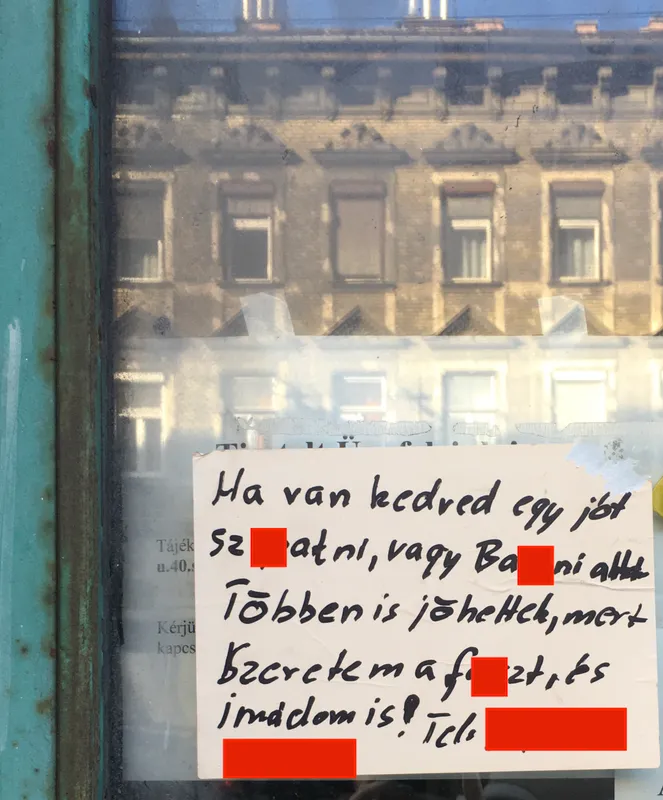 Tájék
u.40.s
Kérjü
kapcs
Ha van kedved egy jót
sz atni, vagy Ba ni
Többen is jöhettek, mert
Szeretem a f szt, és
imádom is! Tel: